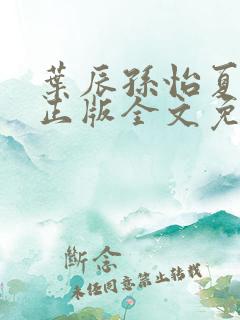 葉辰孫怡夏
正版全文免
斷念
未经同意禁止转载